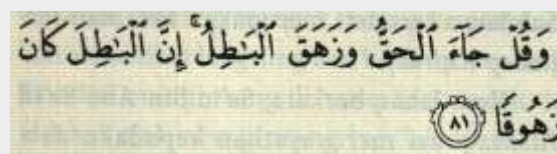 وَقُلْ جَآءَ ٱلْحَقُّ وَزَهَقَ ٱلْبَٰطِلُ ۚ إِنَّ ٱلْبَٰطِلَ كَانَ
زَهُوقًا ٨١